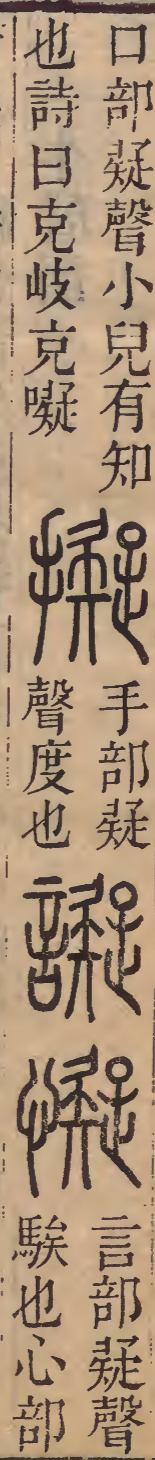 口部疑聲小兒有知
也詩曰克岐克㘈
擬
手部疑
聲度也
譺
懝
言部疑聲
騃也心部